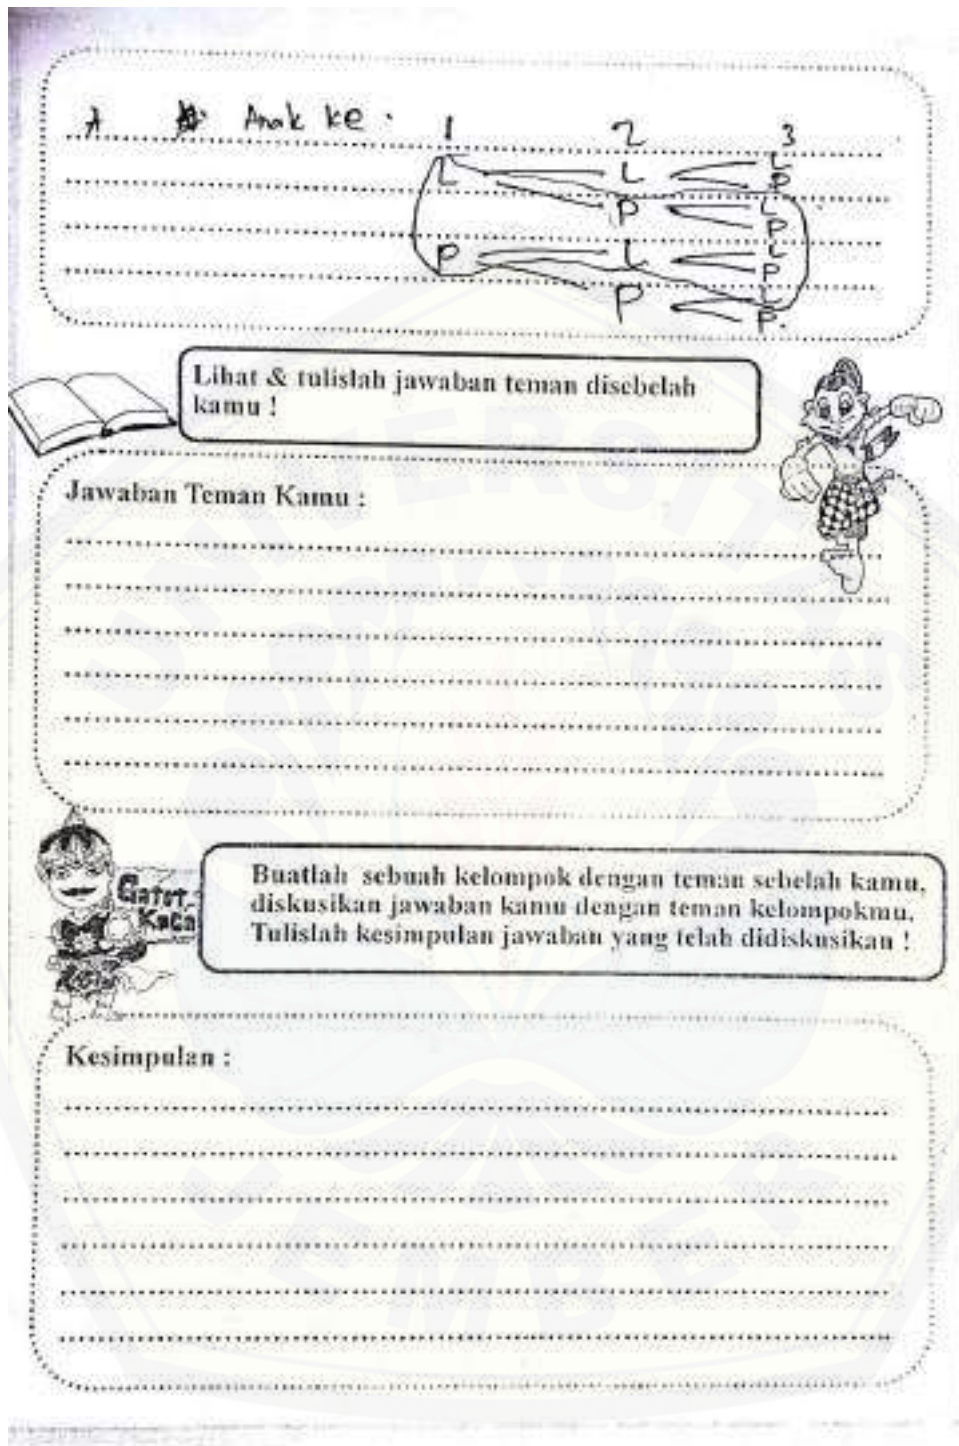 A Anak ke .
1 2 3
L L L
P
P L
P
P L L
P
P L
P.
Lihat & tulislah jawaban teman disebelah
kamu !
Jawaban Teman Kamu :
Gatot
KaCa
Buatlah sebuah kelompok dengan teman sebelah kamu,
diskusikan jawaban kamu dengan teman kelompokmu.
Tulislah kesimpulan jawaban yang telah didiskusikan !
Kesimpulan :
UNIVERSITAS
JEMBER